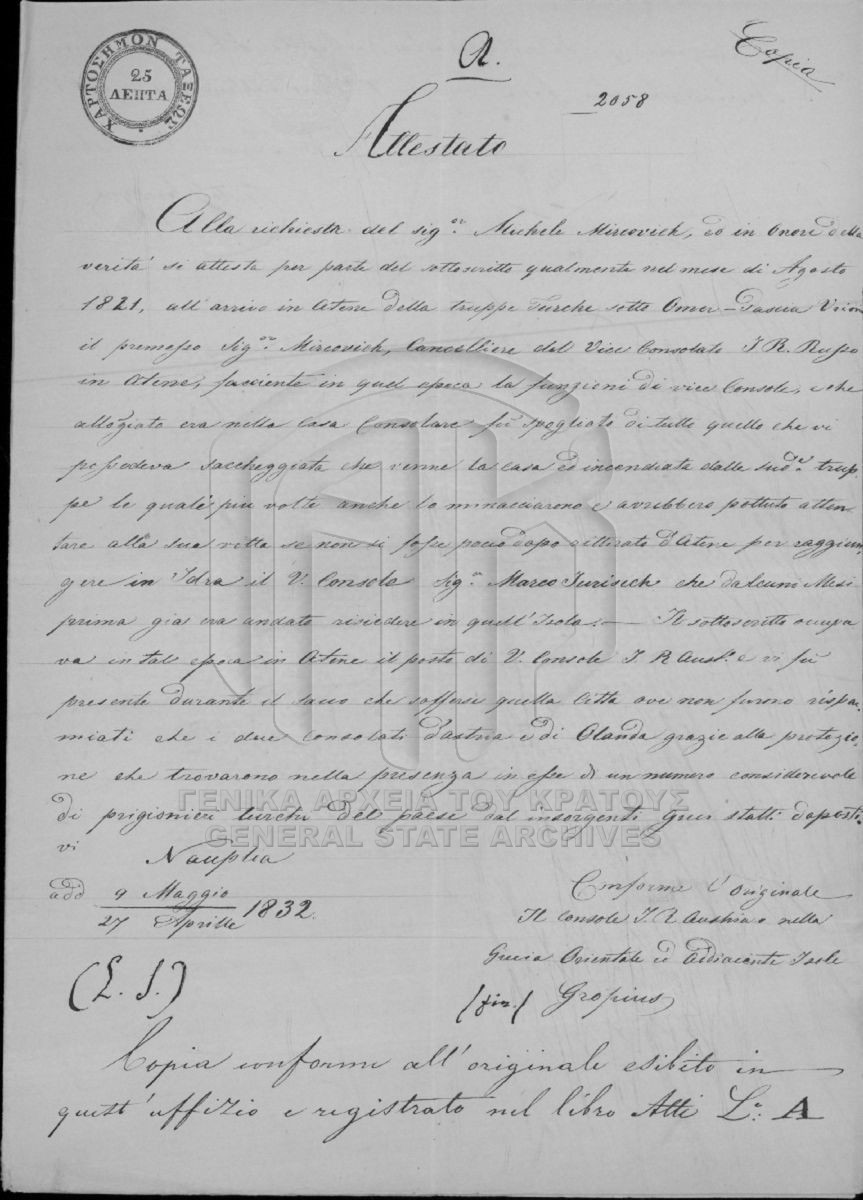 ΧΑΡΤΟΣΗΜΟΝ ΤΑΞΕΩΣ
25
ΛΕΠΤΑ
A.
Copia
2058
Attestato
Alla richiesta del sig.or Michele Mircovich, ed in onore della
verità si attesta per parte del sottoscritto qualmente nel mese di Agosto
1821, all'arrivo in Atene della truppe Turche sotto Omer-Pascia Vrion
il premesso Sig.or Mircovich, Cancelliere del Vice Consolato I. R. Russo
in Atene, facciente in quel epoca la funzioni di vice Console, e che
allogiato era nella Casa Consolare fù spogliato di tutto quello che vi
possedeva saccheggiata che venne la casa ed incendiata dalle sud.e trup
pe le quale, piu volte anche lo minacciarono e avrebbero pottuto atten
tare alla sua vitta se non si fosse poco dopo rittirato d'Atene per raggiun
gere in Idra il V. Console Sig.or Marco Iurisich che da alcuni Mesi
prima gia era andato risiedere in quell'Isola: — Il sottoscritto occupa
va in tal epoca in Atene il posto di V. Console I. R Aust.o e vi fù
presente durante il sacco che sofferse quella Citta ove non furono rispar
miati che i due consolati d'astria e di Olanda grazie alla protezio
ne che trovarono nella presenza in esse di un numero considerevole
di prigionieri turchi del paese dal insorgenti Greci statti daposti
vi
Nauplia
add 9 Maggio
27 Aprille 1832.
Conforme l'originale
Il Console I. R Austriaco nella
Grecia Orientale ed Addiacente Isole
(L. S.)
(fir.) Gropius
Copia conforme all'originale esibito in
quest'uffizio e registrato nel libro Atti L.a A
ΓΕΝΙΚΑ ΑΡΧΕΙΑ ΤΟΥ ΚΡΑΤΟΥΣ
GENERAL STATE ARCHIVES